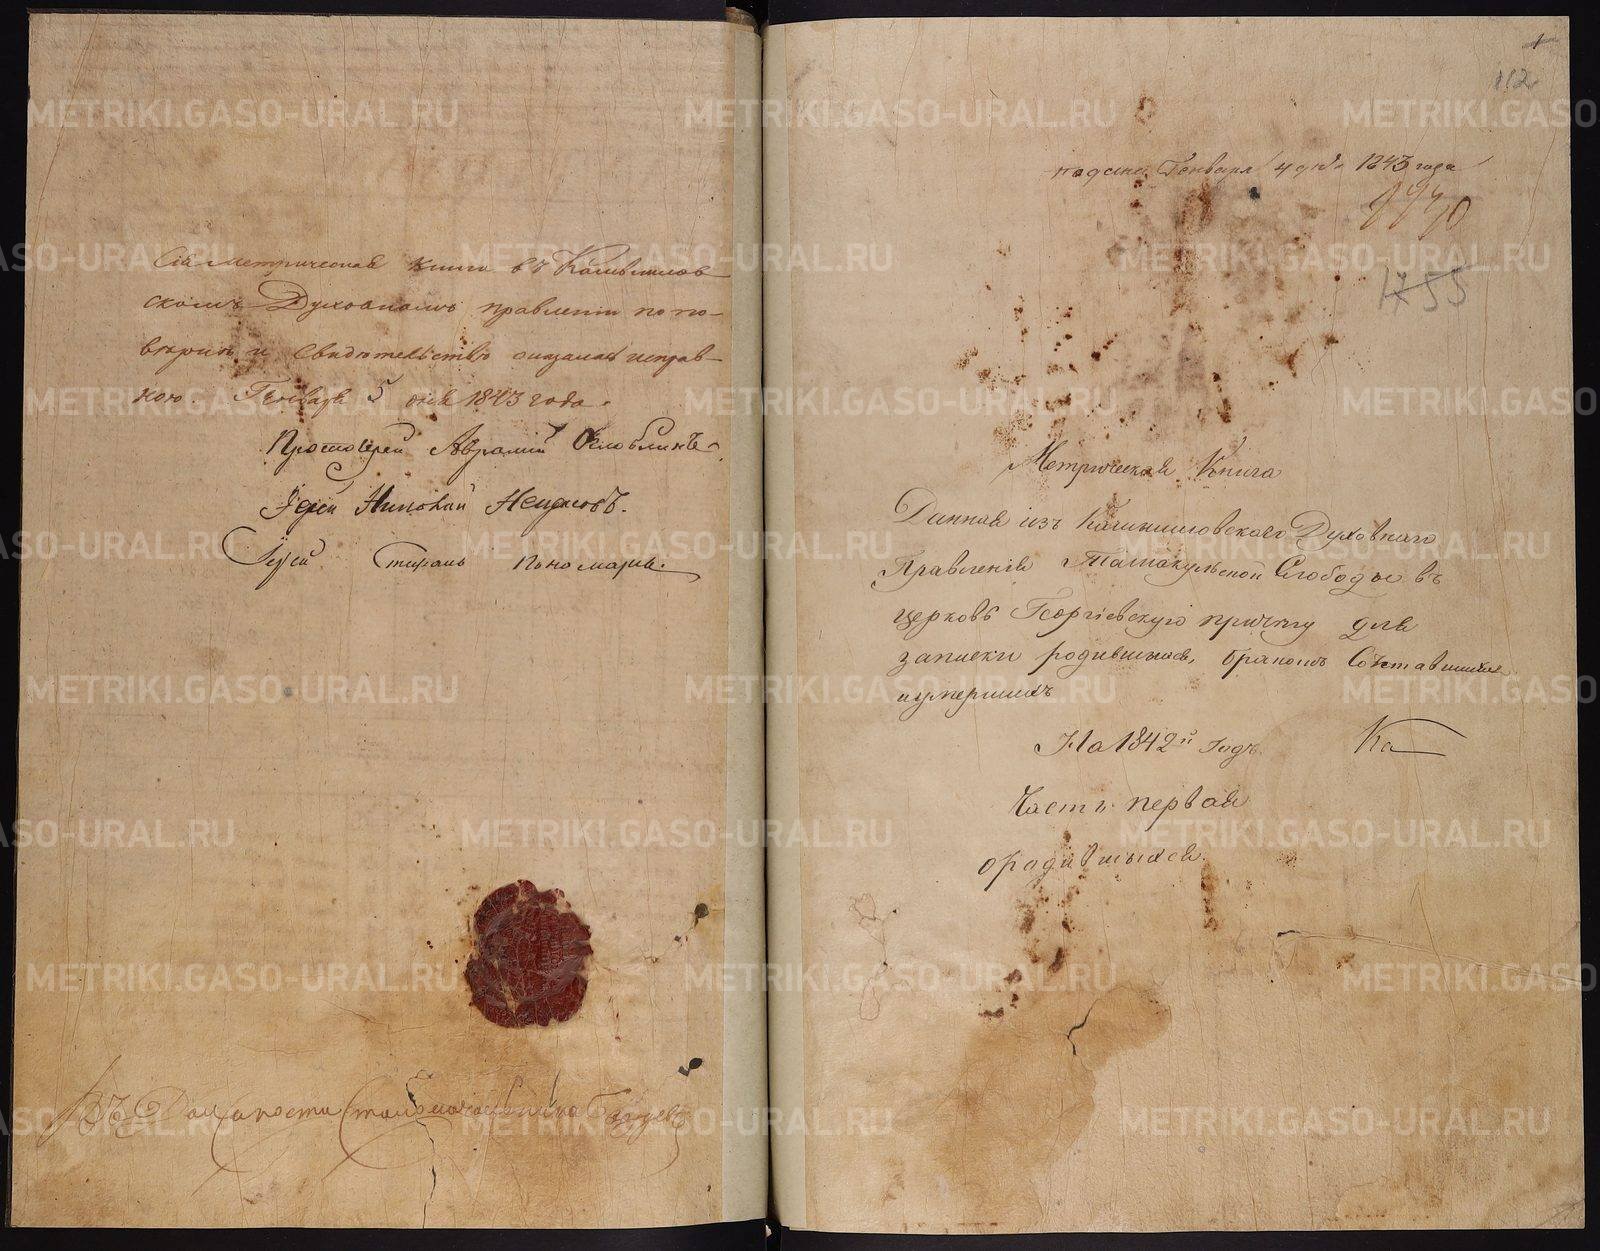 Сія Метрическая книга въ Камышлов-
скомъ Духовномъ правленіи по по-
вѣркѣ и свидѣтельствѣ оказалась исправ-
ною. Генваря 5 дня 1843 года.
Протоіерей Аврамій Оглоблинъ
Іерей Николай
Іерей Стефанъ Пономаревъ
Въ Должности Столоначальника
1
112
подана Генваря 4 дня 1843 года
1755
Метрическая Книга
Данная изъ Камышловскаго Духовнаго
Правленія Тамакульской Слободы въ
церковь Георгіевскую причту для
записки родившихся, бракомъ Сочетавшихся
и умершихъ
На 1842й Годъ.
Часть первая
о родившыхся.
METRIKI.GASO-URAL.RU